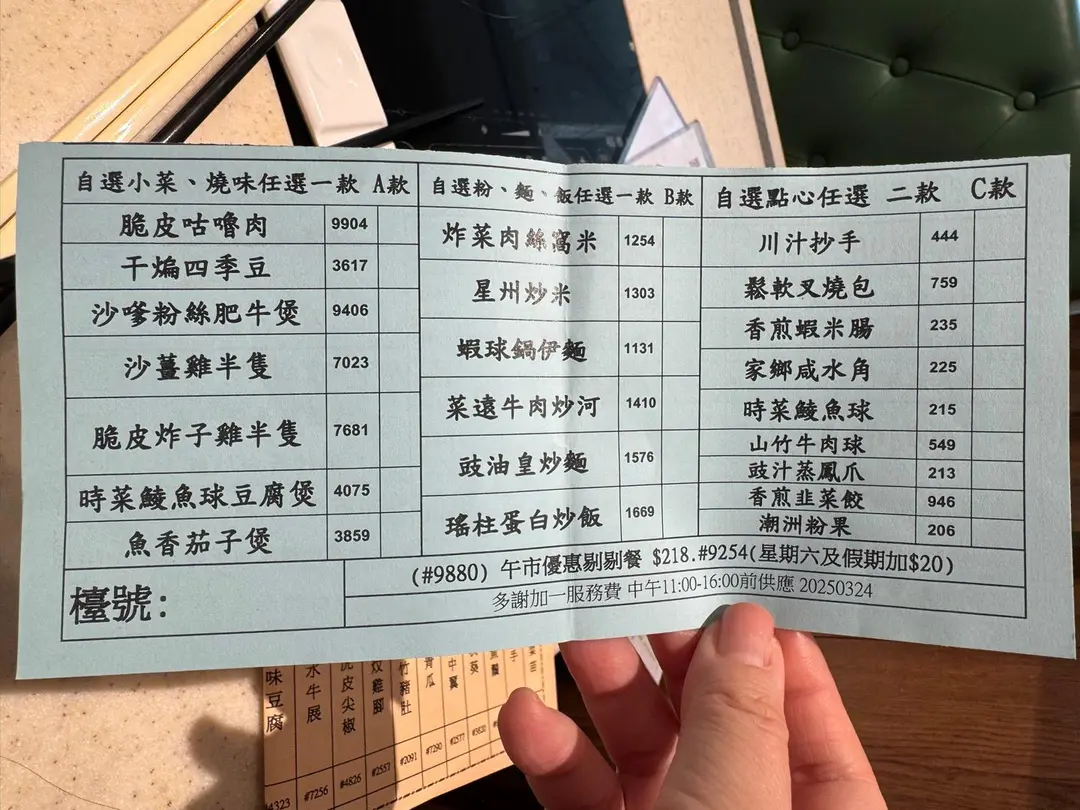 自選小菜、燒味任選一款 A款
脆皮咕嚕肉 9904
干煸四季豆 3617
沙嗲粉絲肥牛煲 9406
沙薑雞半隻 7023
脆皮炸子雞半隻 7681
時菜鯪魚球豆腐煲 4075
魚香茄子煲 3859
自選粉、麵、飯任選一款 B款
炸菜肉絲窩米 1254
星州炒米 1303
蝦球鍋伊麵 1131
菜遠牛肉炒河 1410
豉油皇炒麵 1576
瑤柱蛋白炒飯 1669
自選點心任選 二款 C款
川汁抄手 444
鬆軟叉燒包 759
香煎蝦米腸 235
家鄉咸水角 225
時菜鯪魚球 215
山竹牛肉球 549
豉汁蒸鳳爪 213
香煎韭菜餃 946
潮洲粉果 206
檯號:
(#9880) 午市優惠剔剔餐 $218.#9254(星期六及假期加$20)
多謝加一服務費 中午11:00-16:00前供應 20250324
味豆腐
水牛展 #7256
虎皮尖椒 #4826
#2557
#2091
#7290
#2577
#3820
4323